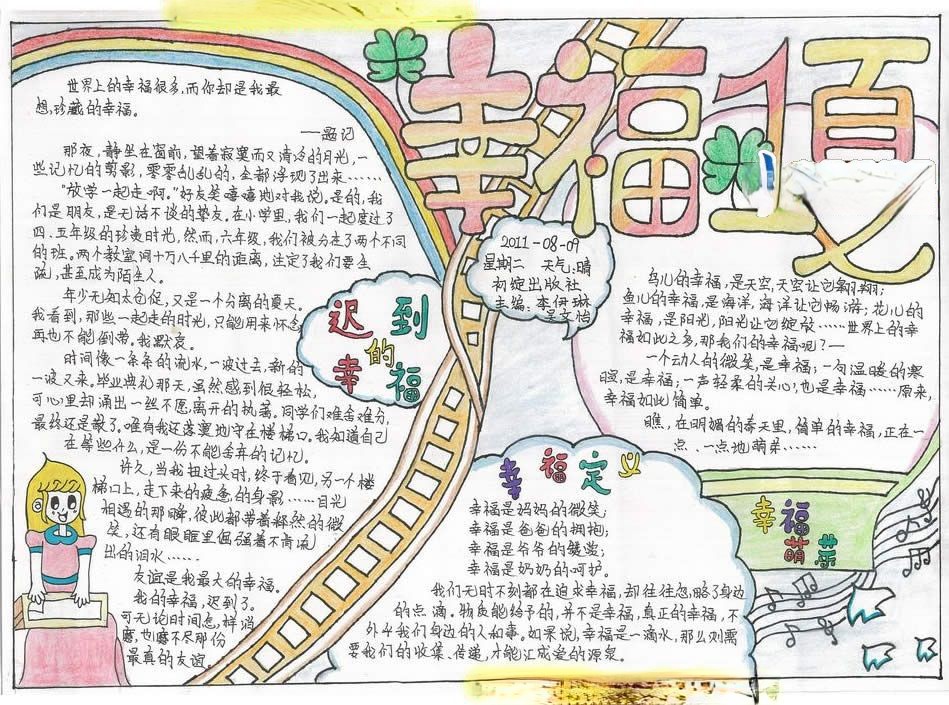 幸福
世界上的幸福很多,而你却是我最
想珍藏的幸福。
——题记
那夜,静坐在窗前,望着寂寞而又清冷的月光,一
些记忆的剪影,零零乱乱的,全都浮现了出来……
“放学一起走啊。”好友笑嘻嘻地对我说,是的,我
们是朋友,是无话不谈的挚友,在小学里,我们一起度过了
四、五年级的珍贵时光,然而,六年级,我们被分在了两个不同
的班。两个教室间十万八千里的距离,注定了我们要生
疏,甚至成为陌生人。
年少无知太仓促,又是一个分离的夏天。
我看到,那些一起走的时光,只能用来怀念
再也不能倒带。我默哀。
时间像一条条的流水,一波过去,新的
一波又来。毕业典礼那天,虽然感到很轻松,
可心里却涌出一丝不愿离开的执著。同学们难舍难分,
最终还是散了。唯有我还落寞地守在楼梯口。我知道自己
在等些什么,是一份不能舍弃的记忆。
许久,当我扭过头时,终于看见,另一个楼
梯口上,走下来的疲惫的身影……目光
相遇的那瞬,彼此都带着释然的微
笑,还有眼眶里倔强着不肯流
出的泪水……
友谊是我最大的幸福。
我的幸福,迟到了。
可无论时间怎样消
磨,也磨不尽那份
最真的友谊。
迟到
的
幸福
2011-08-09
星期二 天气:晴
初绽出版社
主编:李伊琳
吴文怡
鸟儿的幸福,是天空,天空让它翱翔;
鱼儿的幸福,是海洋,海洋让它畅游;花儿的
幸福,是阳光,阳光让它绽放……世界上的幸
福如此之多,那我们的幸福呢?—
一个动人的微笑,是幸福;一句温暖的寒
暄,是幸福;一声轻柔的关心,也是幸福……原来,
幸福如此简单。
瞧,在明媚的春天里,简单的幸福,正在一
点、一点地萌芽……
幸福
萌芽
幸福定义
幸福是妈妈的微笑;
幸福是爸爸的拥抱;
幸福是爷爷的
幸福是奶奶的呵护。
我们无时不刻都在追求幸福,却往往忽略了身边
的点滴。物质能给予的,并不是幸福,真正的幸福,不
外乎我们身边的人和事。如果说,幸福是一滴水,那么则需
要我们的收集、传递,才能汇成爱的源泉。